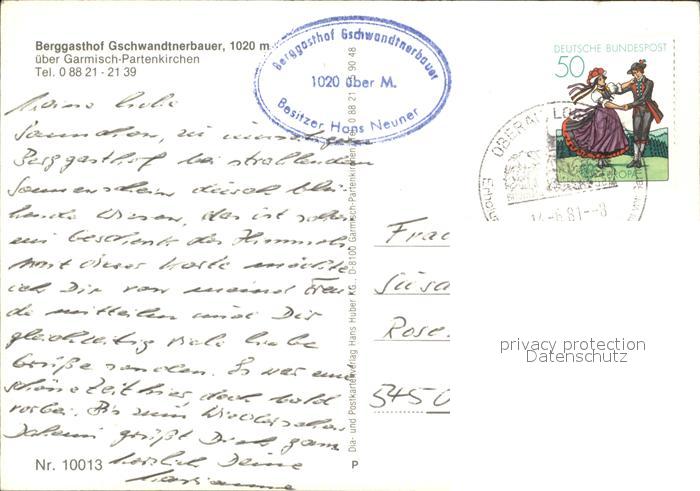 Berggasthof Gschwandtnerbauer, 1020 m
über Garmisch-Partenkirchen
Tel. 0 88 21 - 21 39
Meine liebe
Berggasthof bei strahlendem
Sonnenschein durch blü-
hende Wiesen, das ist schon
ein Geschenk des Himmels
mit dieser Karte möchte
ich Dir von meiner Freu-
de mitteilen und Dir
gleichzeitig viele liebe
Grüße senden. Es war eine
schöne Zeit hier, doch bald
vorbei. Bis zum Wiedersehen
Daheim grüßt Dich ganz
herzlich Deine
Marianne
Nr. 10013
Berggasthof Gschwandtnerbauer
1020 über M.
Besitzer Hans Neuner
Dia- und Postkartenverlag Hans Huber KG., D-8100 Garmisch-Partenkirchen
P
DEUTSCHE BUNDESPOST
50
EUROPA
OBERAU
14-6.81--8
Frau
Susa
Rose
3450
privacy protection
Datenschutz